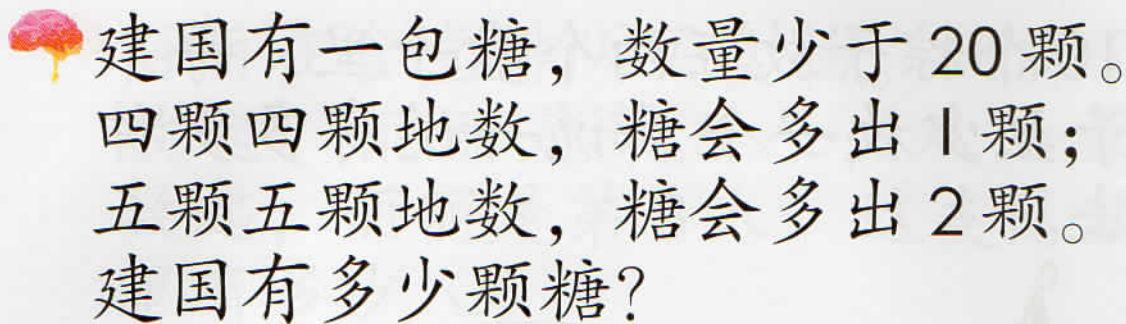 建国有一包糖，数量少于 20 颗。
四颗四颗地数，糖会多出 1 颗；
五颗五颗地数，糖会多出 2 颗。
建国有多少颗糖？